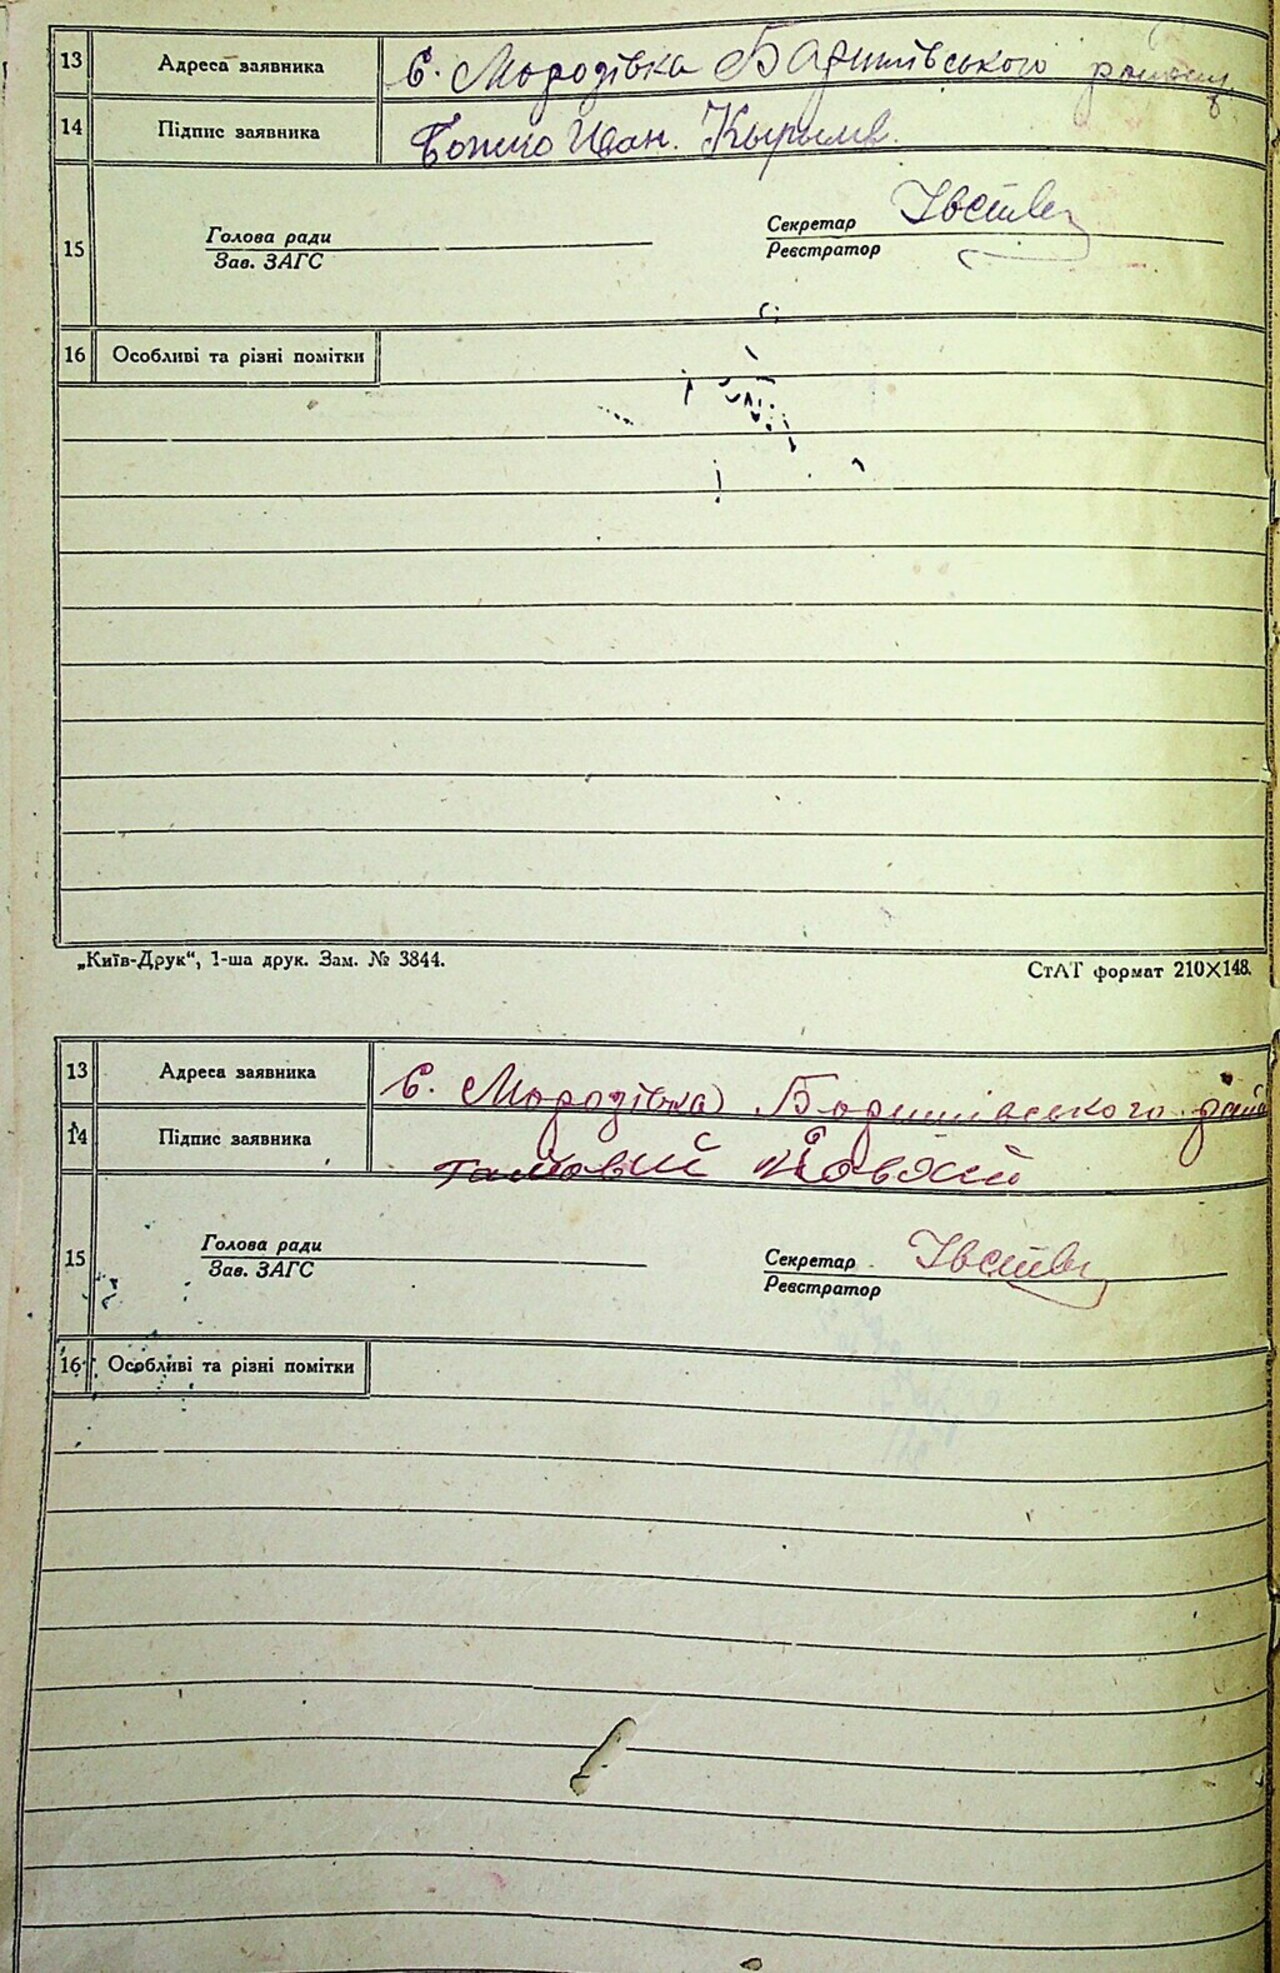 13 Адреса заявника с. Мороzівка Баришівського району
14 Підпис заявника Божко Иван. Кырылв.
15 Голова ради Секретар
Зав. ЗАГС Реєстратор
16 Особливі та різні помітки
„Київ-Друк“, 1-ша друк. Зам. № 3844. СтАТ формат 210×148.
13 Адреса заявника с. Морозівка Баришівського рай
14 Підпис заявника
15 Голова ради Секретар
Зав. ЗАГС Реєстратор
16 Особливі та різні помітки